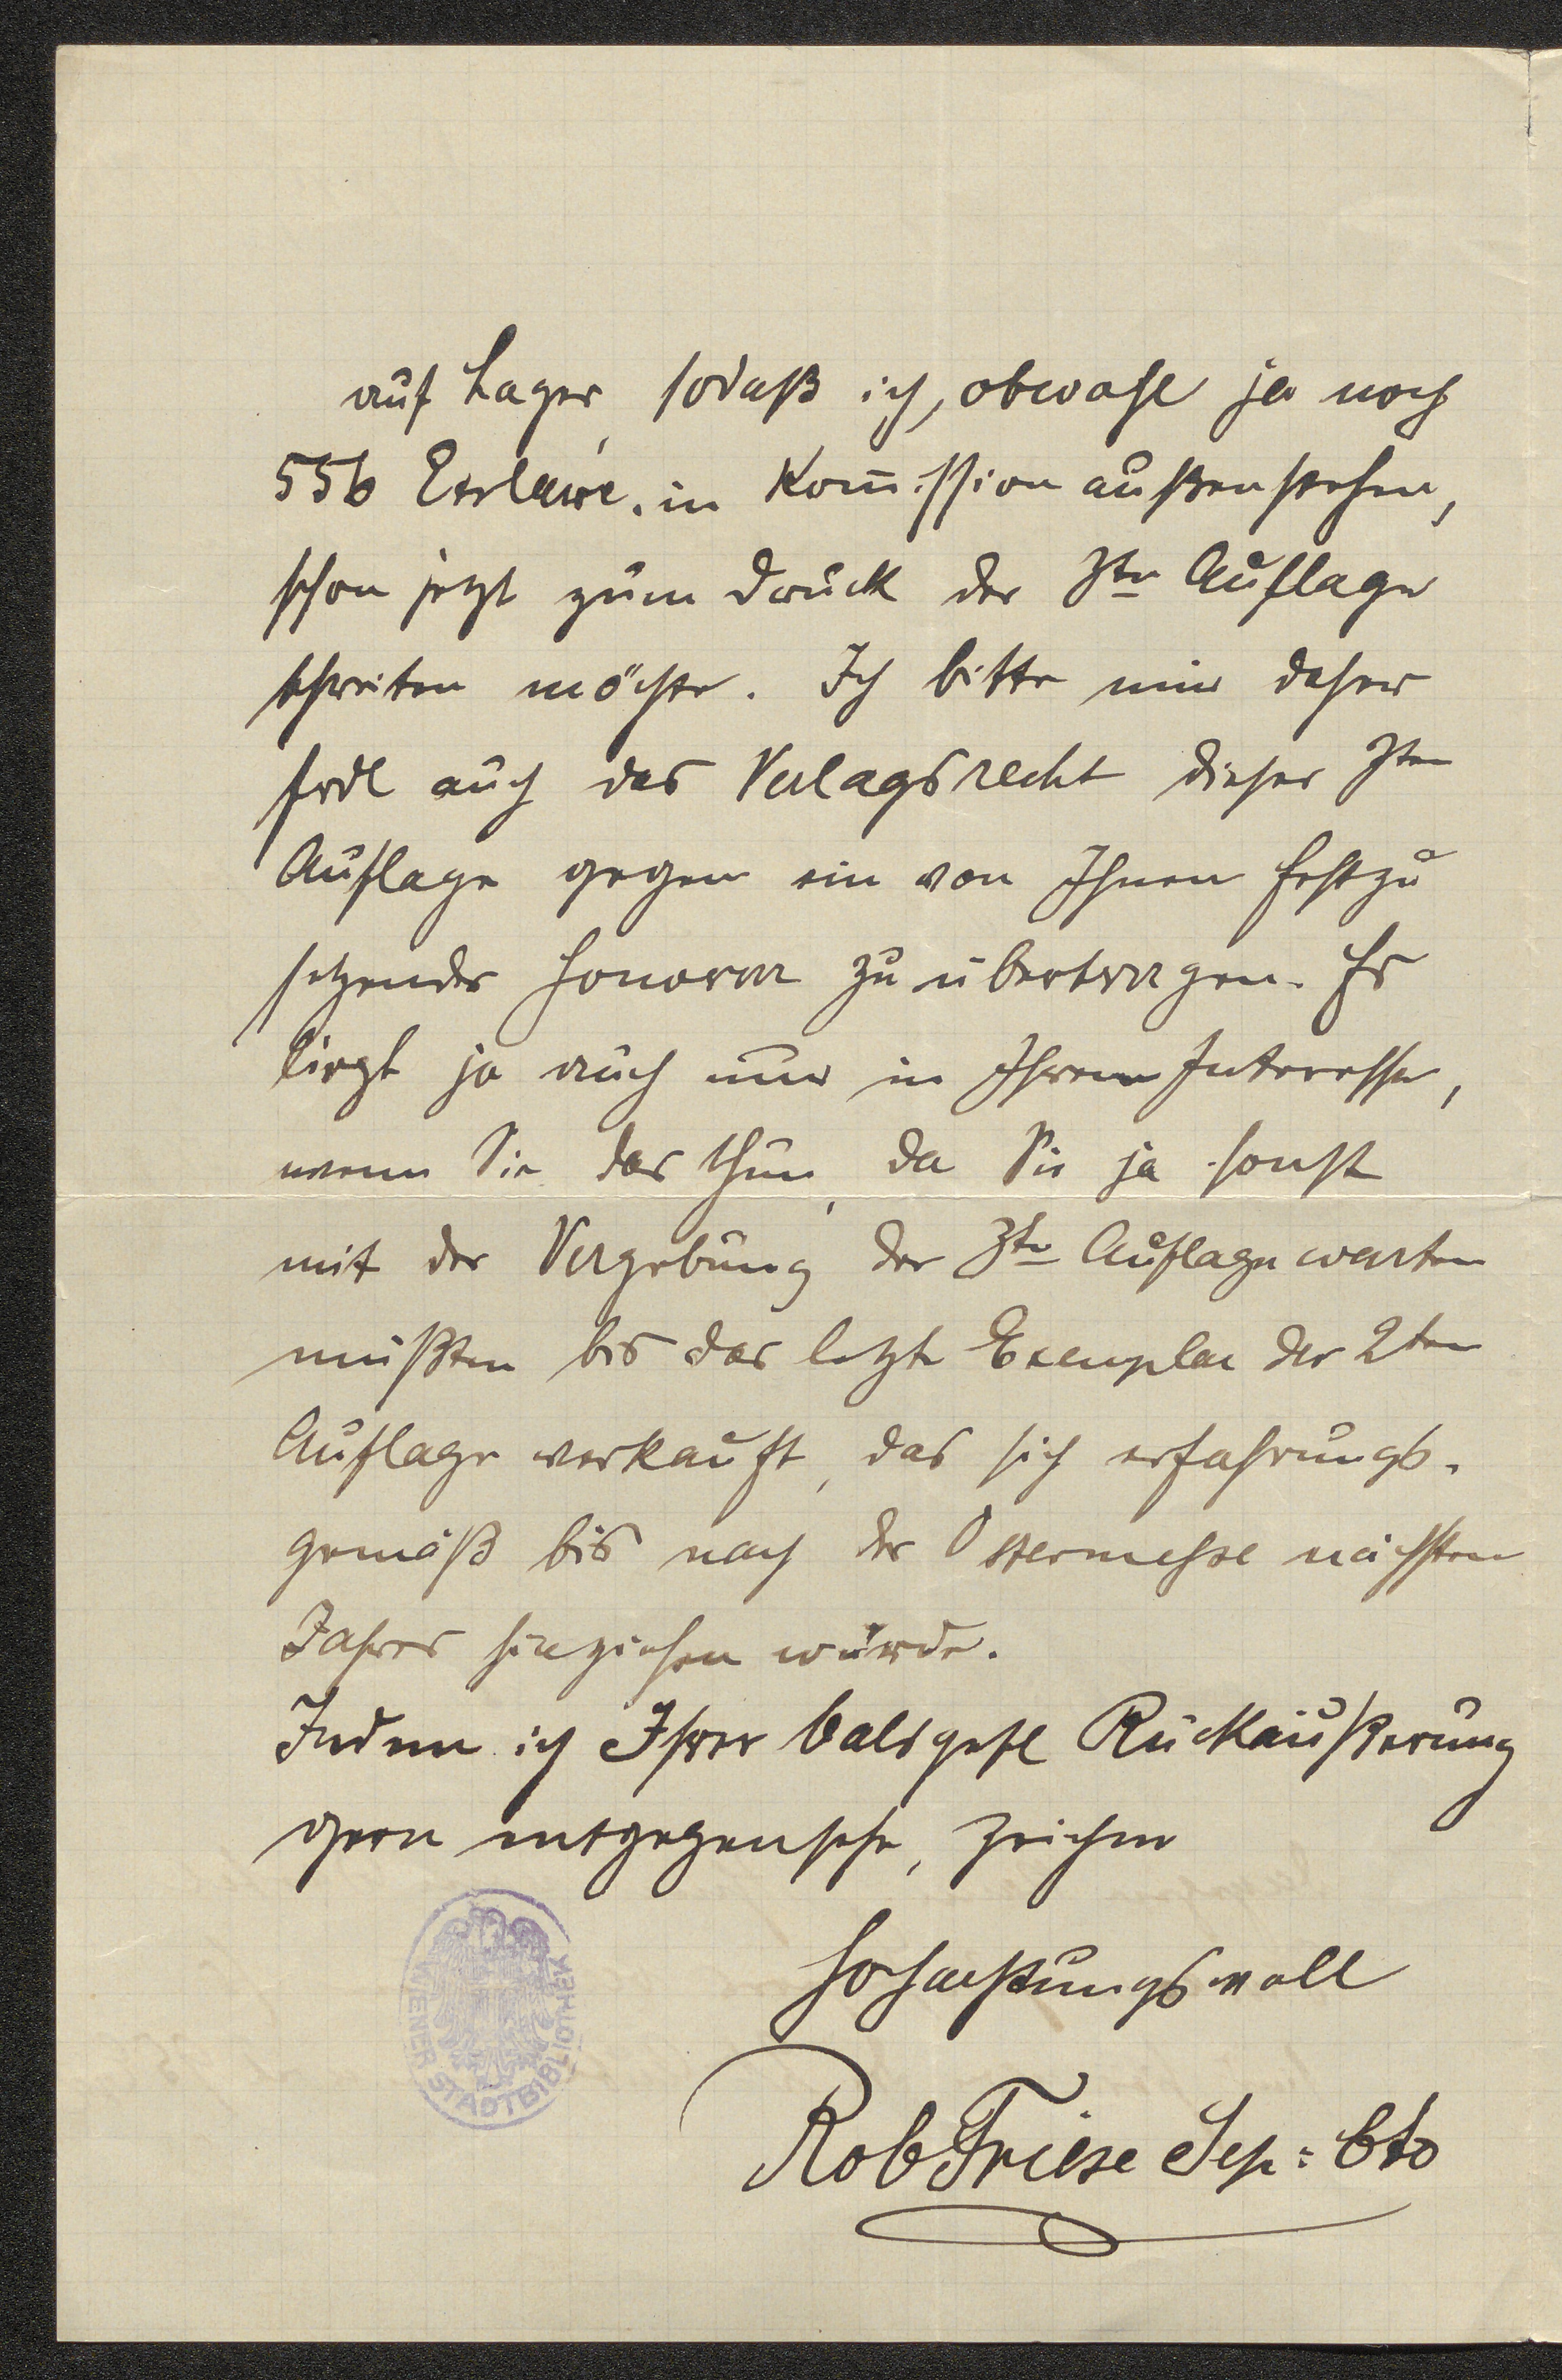 auf Lager, sodaß ich, obwohl ja noch
556 Exelare. in Kom̄ission außenstehen,
schon jetzt zum Druck der 3ten Auflage
schreiten möchte. Ich bitte mir daher
frdl auch das Verlagsrecht dieser 3ten
Auflage gegen ein von Ihnen festzu
setzendes Honorar zu übertragen. Es
liegt ja auch nur in Ihrem Interesse,
wenn Sie das thun, da Sie ja sonst
mit der Vergebung der 3ten Auflage warten
müßten bis das letzte Exemplar der 2ten
Auflage verkauft, das sich erfahrungs-
gemäß bis nach der Ostermesse nächsten
Jahres hinziehen würde.
Indem ich Ihrer baldgefl Rückäußerung
gern entgegensehe, zeichne
Hochachtungsvoll
Rob Friese Sep: Cto
WIENER STADTBIBLIOTHEK